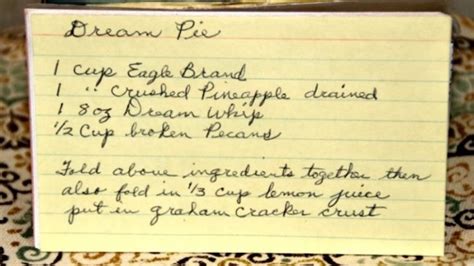 Dream Pie
1 cup Eagle Brand
1 " crushed Pineapple drained
1 8oz Dream Whip
1/2 Cup broken Pecans
Fold above ingredients together then
also fold in 1/3 cup lemon juice
put in graham cracker crust